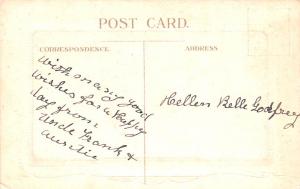 POST CARD.
CORRESPONDENCE.
ADDRESS
With many good
wishes for a happy
day from
Uncle Frank &
Auntie
Hellen Belle Godfrey